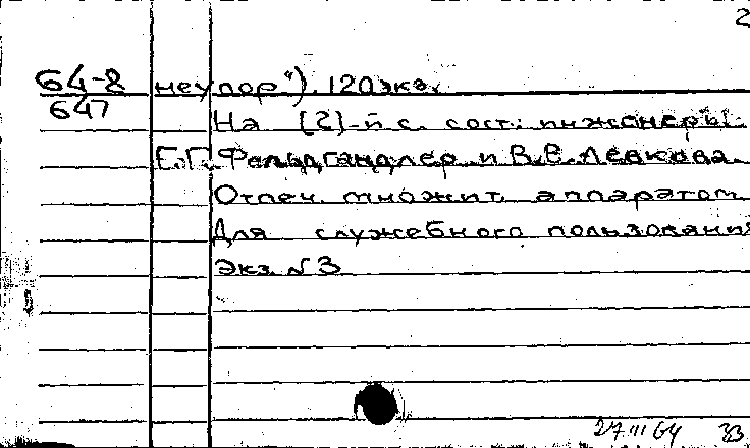 2
64-8 неупор"). 120экз.
647
На [2]-й с. сост.: инженеры
Г.Г. Фельдгандлер и В.В. Левкова.
Отпеч. множит. аппаратом
Для служебного пользования
Экз. № 3
27 III 64 33